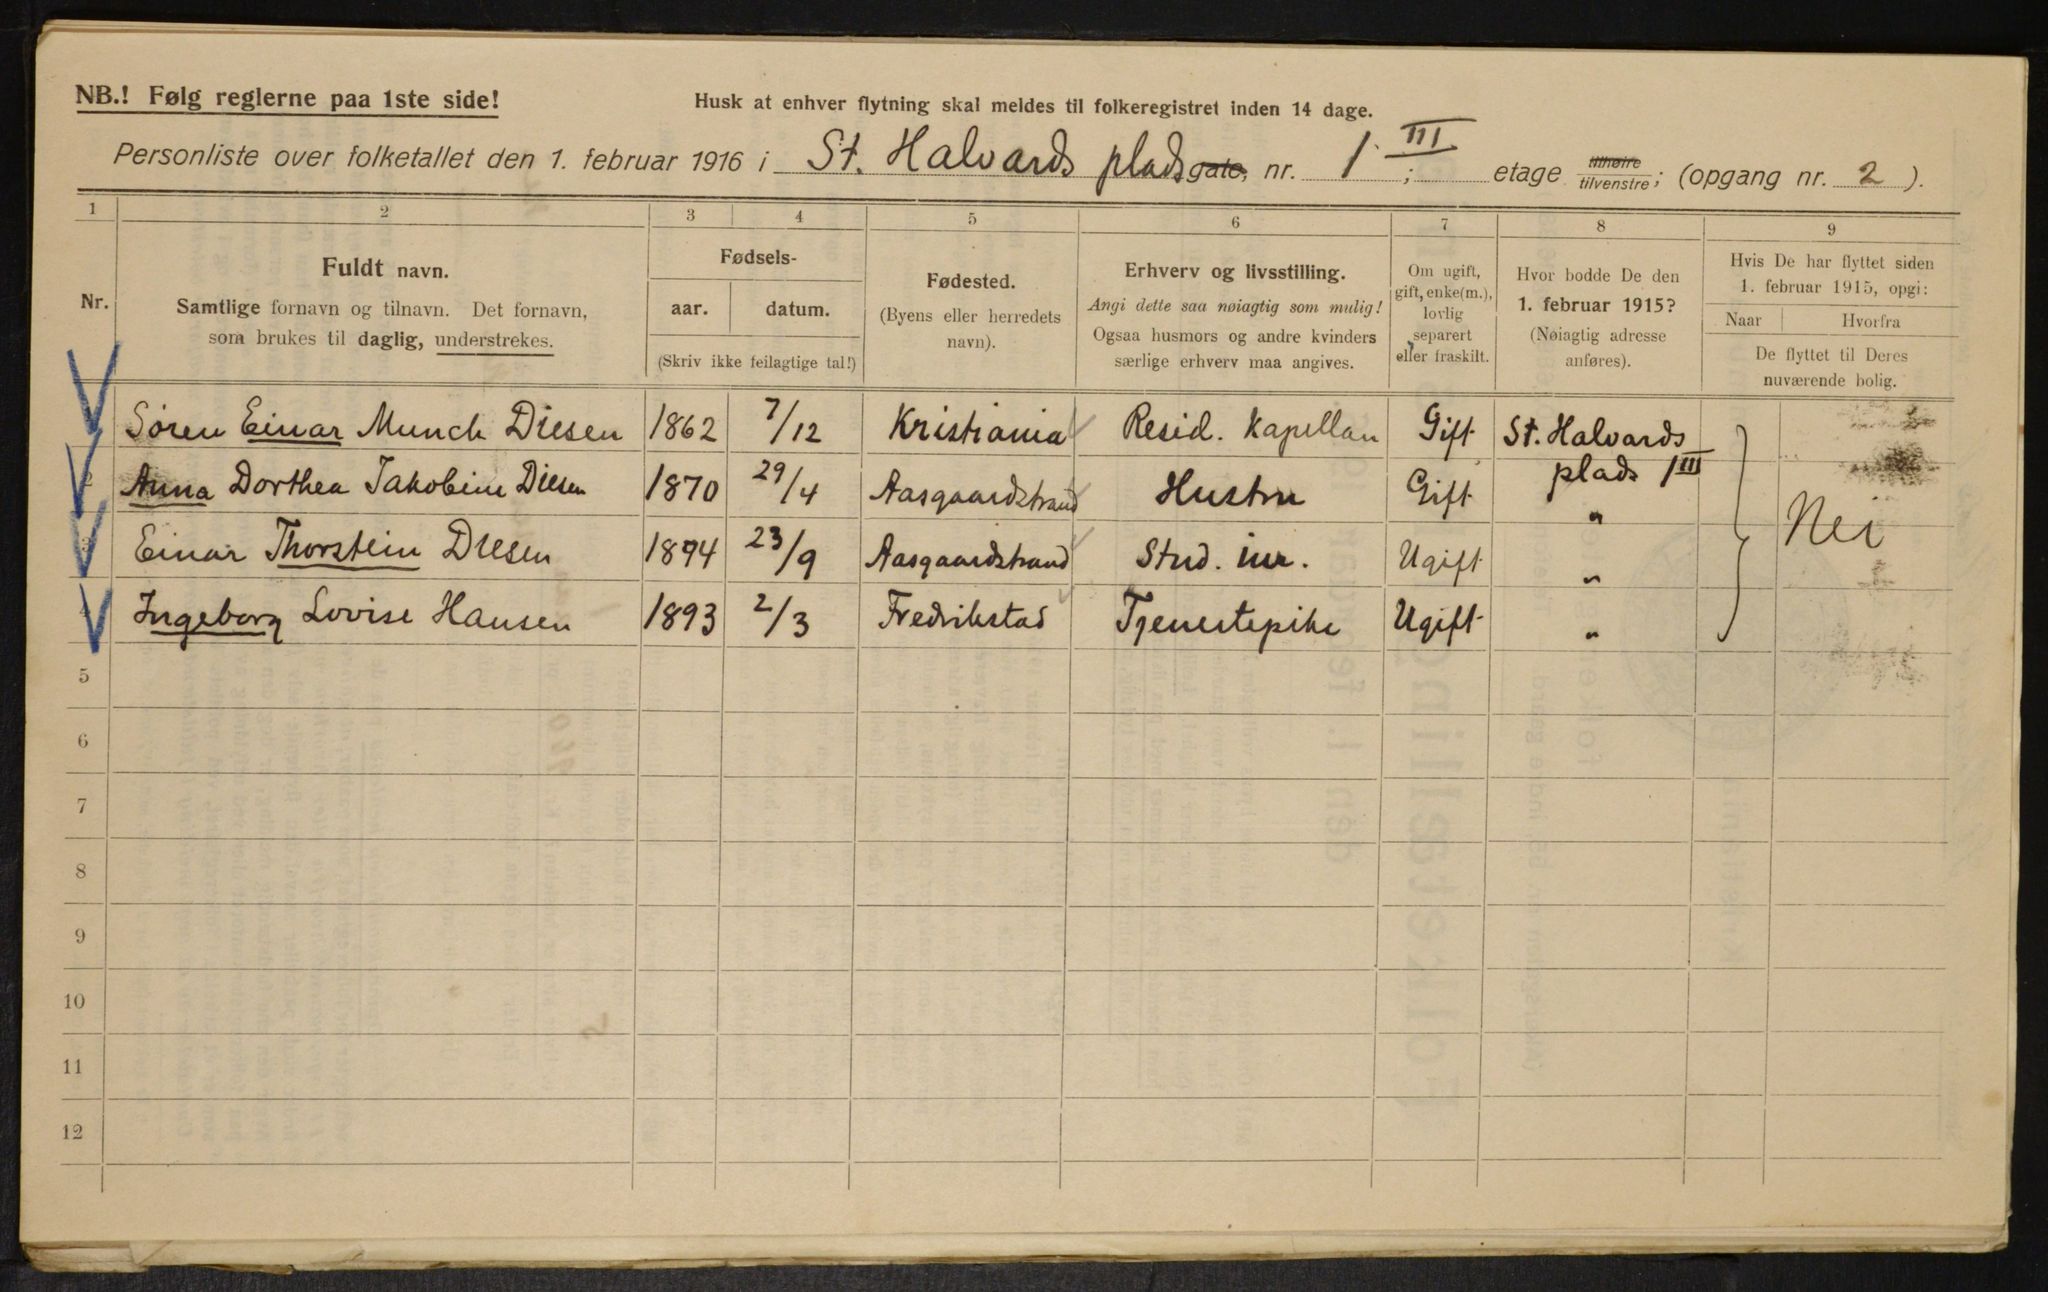 NB.! Følg reglerne paa 1ste side!
Husk at enhver flytning skal meldes til folkeregistret inden 14 dage.
Personliste over folketallet den 1. februar 1916 i St. Halvards plads gate, nr. 1 ; III etage tilhøire tilvenstre; (opgang nr. 2 ).
1 2 3 4 5 6 7 8 9
Nr.
Fuldt navn.
Samtlige fornavn og tilnavn. Det fornavn,
som brukes til daglig, understrekes.
Fødsels-
aar. datum.
(Skriv ikke feilagtige tal!)
Fødested.
(Byens eller herredets
navn).
Erhverv og livsstilling.
Angi dette saa nøiagtig som mulig!
Ogsaa husmors og andre kvinders
særlige erhverv maa angives.
Om ugift,
gift, enke(m.),
lovlig
separert
eller fraskilt.
Hvor bodde De den
1. februar 1915?
(Nøiagtig adresse
anføres).
Hvis De har flyttet siden
1. februar 1915, opgi:
Naar Hvorfra
De flyttet til Deres
nuværende bolig.
Søren Einar Munch Diesen 1862 7/12 Kristiania Resid. Kapellan Gift St. Halvards
plads 1 III
Anna Dorthea Jakobine Diesen 1870 29/4 Aasgaardstrand Hustru Gift "
Einar Thorstein Diesen 1894 23/9 Aasgaardstrand Stud. iur. Ugift " Nei
4 Ingeborg Lovise Hansen 1893 2/3 Fredrikstad Tjenestepike Ugift "
5
6
7
8
9
10
11
12